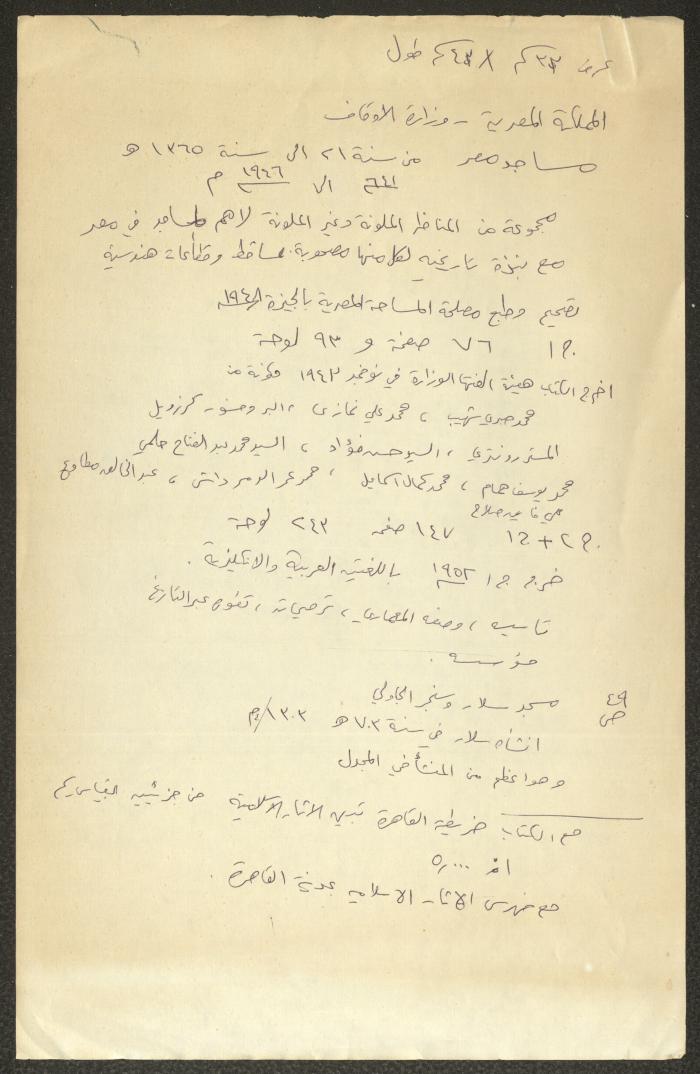 عرض ٣٣ كم × ٤٣ كم طول
المملكة المصرية - وزارة الاوقاف
مساجد مصر من سنة ٢١ الى سنة ١٣٦٥ هـ
٦٤١ الى ١٩٤٦ م
مجموعة من المناظر الملونة وغير الملونة لاهم المساجد في مصر
مع نبذة تاريخية لكل منها مصحوبة بمساقط وقطاعات هندسية
تصميم وطبع مصلحة المساحة المصرية بالجيزة ١٩٤٨
ج١ ٧٦ صفحة و ٩٣ لوحة
اخرج الكتاب هيئة الفتها الوزارة في نوفمبر ١٩٤٢ مكونة من
محمد صبري شهيب ، محمد علي غازي ، البروفسور كرزويل
المستر روندي ، السيد حسن فؤاد ، السيد محمد عبد الفتاح حلمي
محمد يوسف همام ، محمد كمال اسماعيل ، محمد عمر الدمرداش ، عبد الخالق مطاوع
علي صلاح
ج٢ + ج١ ١٤٧ صفحة ٢٤٣ لوحة
خرج ج١ ١٩٥٢ باللغتين العربية والانكليزية .
تأسيسه ، وصفه المعماري ، ترميماته ، عبر التاريخ
مؤسسه .
ص ٤٩ مسجد سلار وسنجر الجاولي
انشأه سلار في سنة ٧٠٣ هـ ١٣٠٣/٤ م
وهو اعظم من المنشأ في المجدل
مع الكتاب خريطة القاهرة تبين الاثار الاسلامية من جزئين بقياس
١ : ٥٠٠٠
مع فهرس الاثار الاسلامية بمدينة القاهرة .